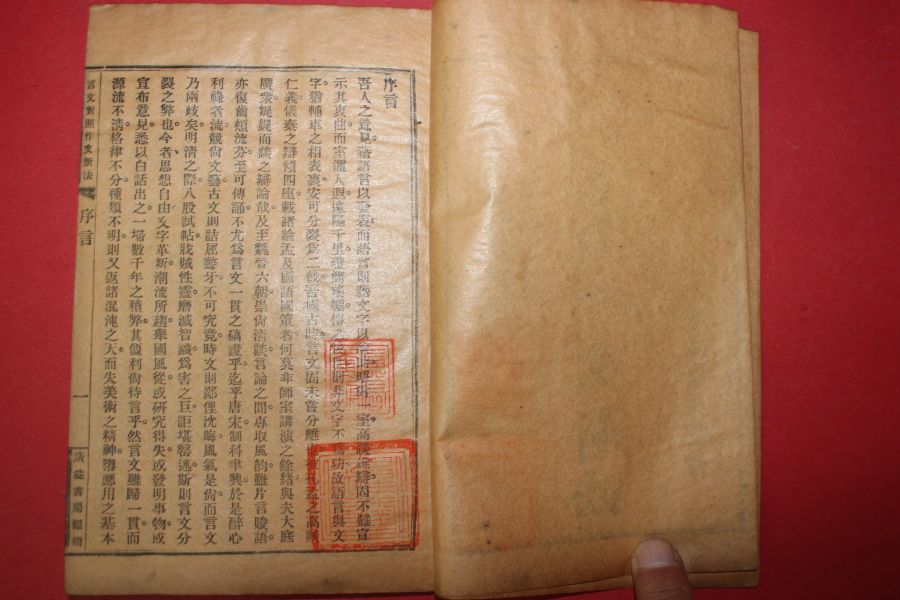 序言
吾人之意見。藉語言以發表。而語言則藉文字以室。高談雄辯。固不難宣
示其衷曲。而室邇人遐。遠隔千里。非文字不為功。故語言與文
字。猶輔車之相表裏。安可分裂為二哉。吾國古時言文固未嘗分離也。孔孟之高談
仁義。儀秦之辯傾四座。載諸論孟及國語國策者。何莫非師室講演之餘緒。與夫大庭
廣衆娓娓而談之辯論哉。及至魏晉六朝。崇尙淸談。言論之間。專取風韵。雖片言賸語。
亦復齒頰流芬。至可傳誦。不尤爲言文一貫之碻證乎。迄乎唐宋。制科聿興。於是醉心
利祿者流。競尙文藝。古文則詰屈聱牙。不可究竟。時文則鄙俚沈晦。風氣是尙。而言文
乃兩歧矣。明淸之際。八股試帖。戕賊性靈。磨滅智識。爲害之巨。詎堪罄述。斯則言文分
裂之弊也。今者思想自由。文字革新。潮流所趨。舉國風從。或研究得失。或發明事物。或
宣布意見。悉以白話出之。一埽數千年之積弊。其便利尙待言乎。然言文雖歸一貫。而
源流不淸。格律不分。種類不明。則又返諸混沌之天。而失美術之精神。墮應用之基本
言文對照作文新法
序言
一
廣益書局編輯